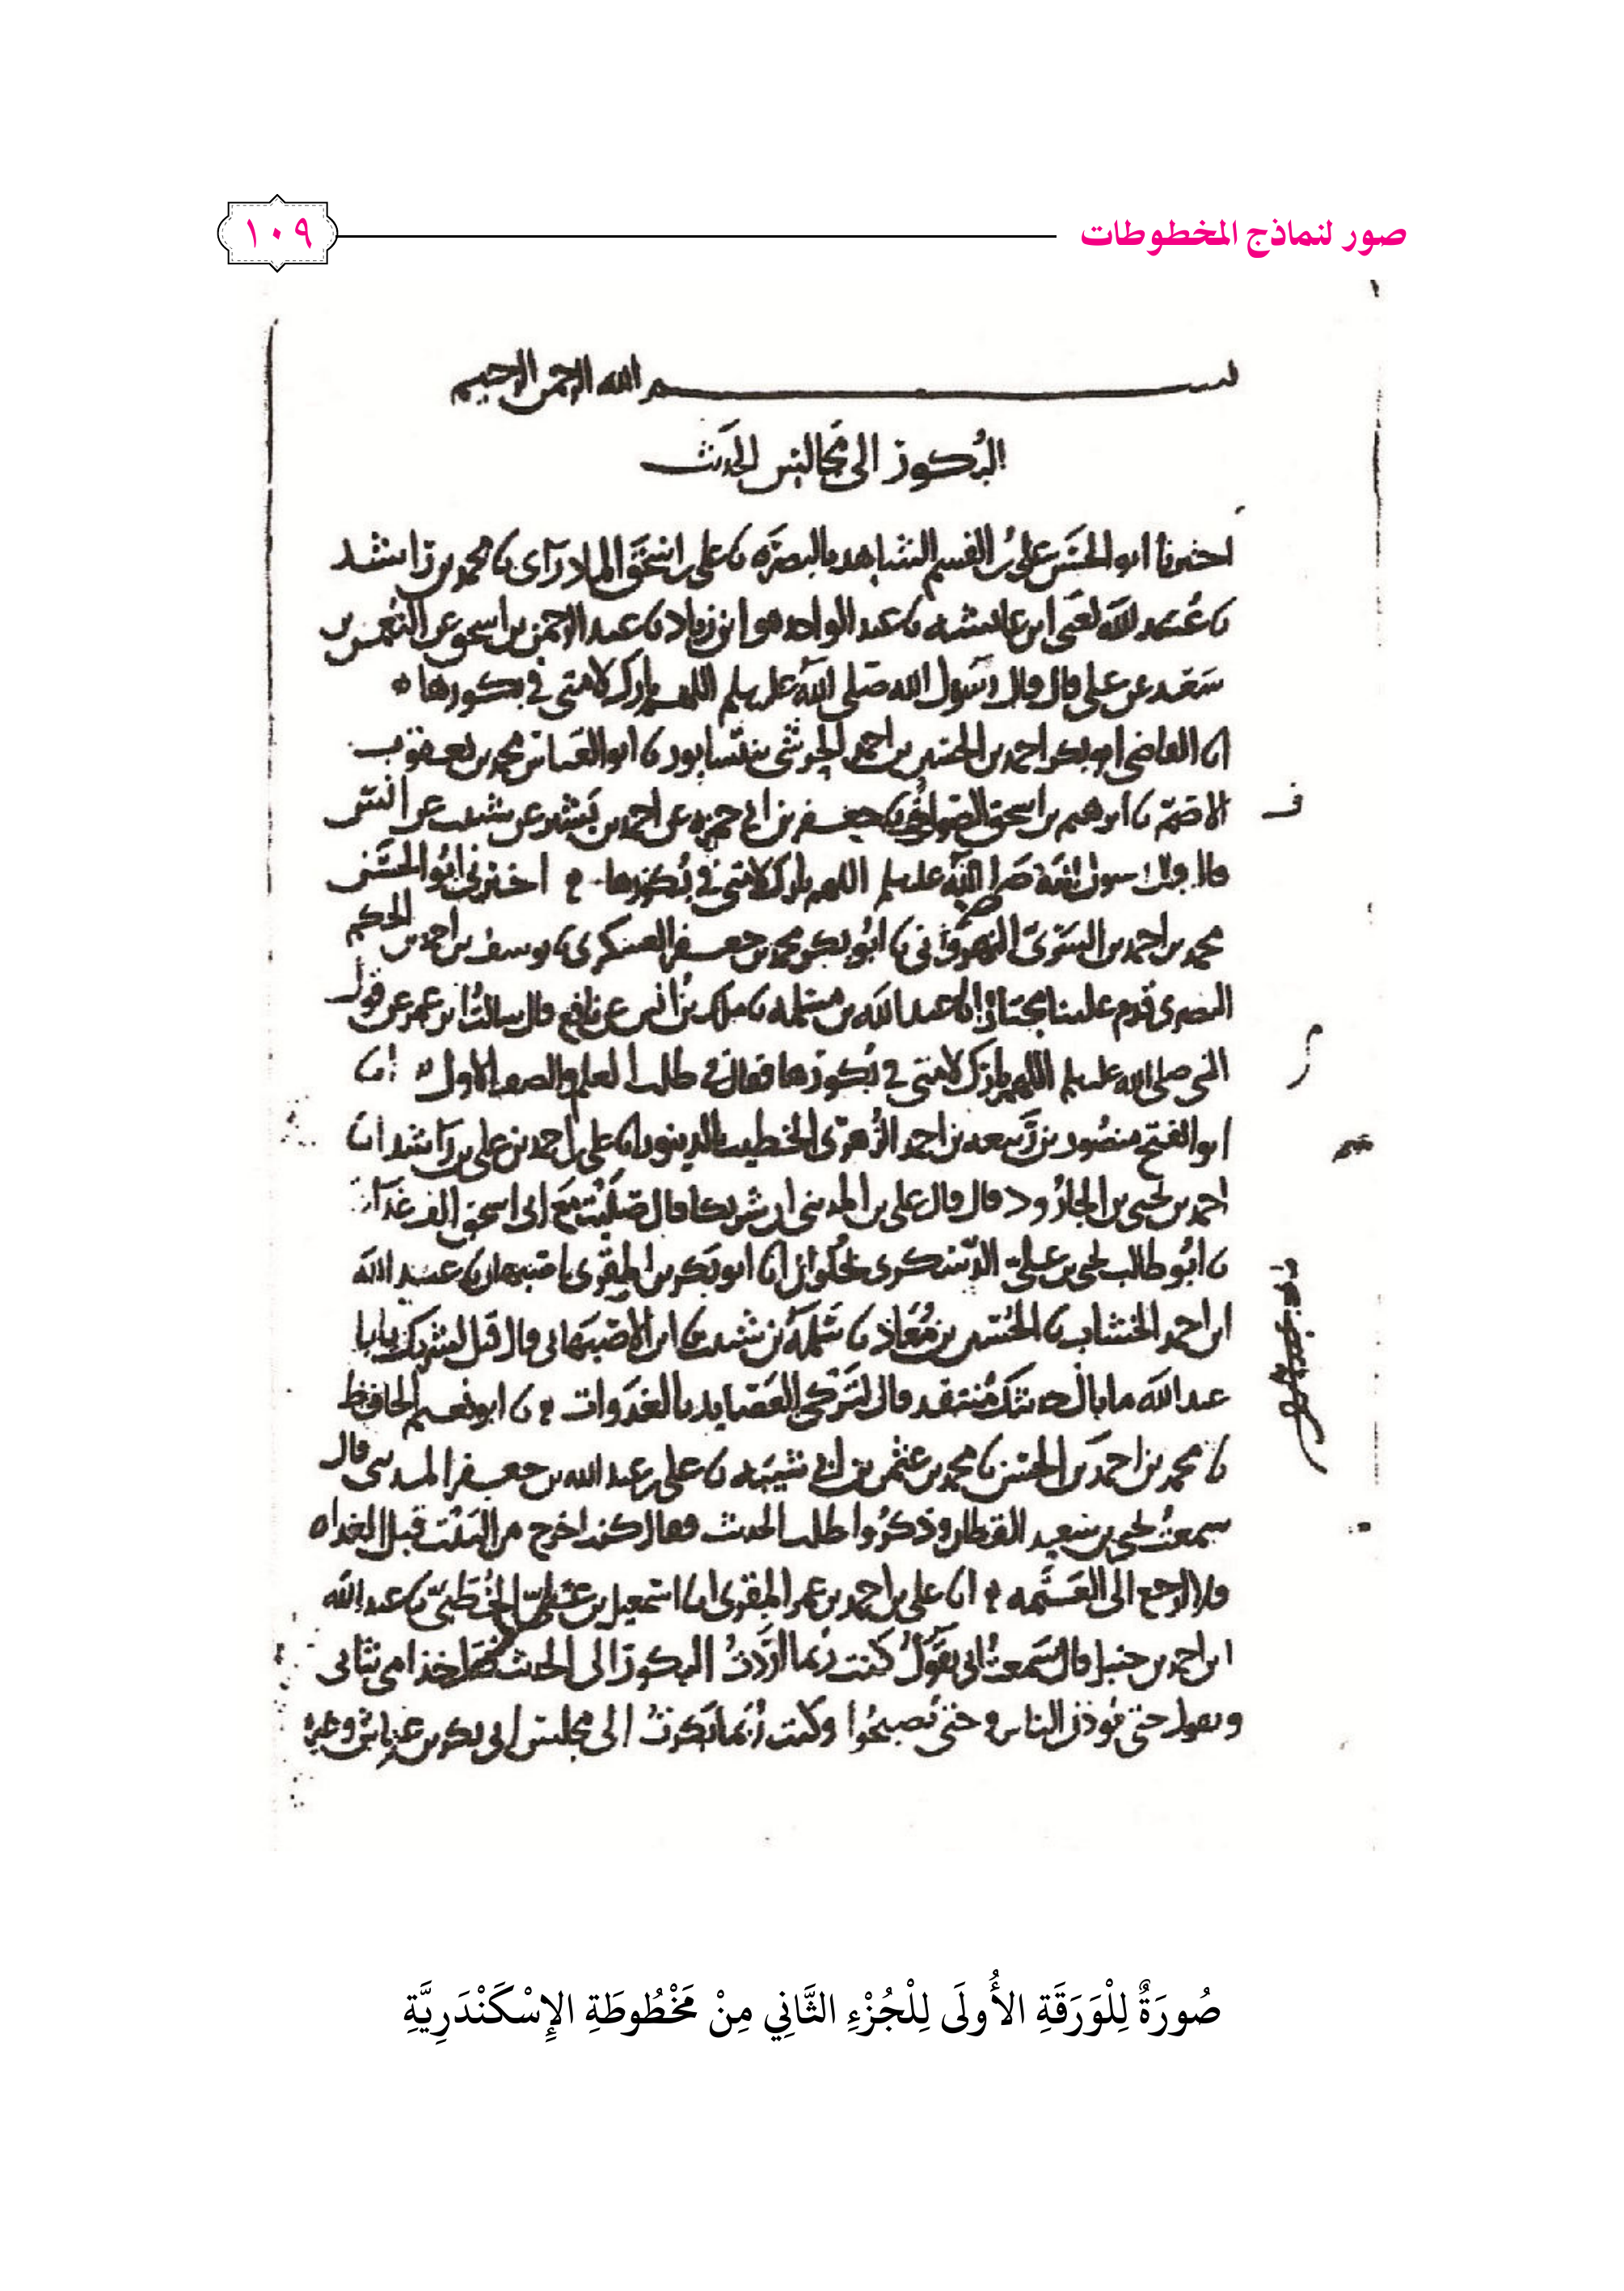 صور لنماذج المخطوطات
١٠٩
بسم الله الرحمن الرحيم
البُكور الى مَجالس الحدىث
اخبرنا ابو الحسَن علىُّ بنُ القسم الشاهد بالبصرَه نا على بن اسحَق المادرآى نا محمد بن راشد
نا عُبَىد الله ىَعنى ابن عائشه نا عبد الواحد هو ابن زىاد نا عبد الرحمن بن اسحق عن النُعمن بن
سَعد عن على قال قال رسَول الله صَلى الله علىه وسلم اللهم بارك لامتى فى بكورها
انا القاضى ابو بكر احمد بن الحسىن بن احمد الحرشى بنىسابور نا ابو العباس محمد بن ىعقوب
الاصَمّ نا ابرهىم بن اسحق الصَواف نا جعفر بن ابى حمزه عن احمد بن بَشىر عن شبىب عن انس
قال قال رسول الله صَلى الله علىه وسلم اللهم بارك لامتى فى بُكورها اخبرنى ابُو الحسَن
محمد بن احمد بن السَرىّ النهروَانى نا ابُو بكر محمد بن جعفر العسكرى نا ىوسف بن احمد بن الحكم
البصرى قدم علىنا مجتازًا نا عبد الله بن مسلمه نا ملك بنُ انس عن نافع قال سالتُ ابن عمر عن قول
النبى صلى الله علىه وسلم اللهم بارك لامتى فى بُكورها فقال فى طلب العلم والصف الاول انا
ابو الفتح منصُور بن رَبىعه بن احمد الزُهرىّ الخطىب بالدىنور انا على بن احمد بن على بن رَاشد انا
احمد بن ىحىى بن الجارُود قال قال على بن المدىنى ان شرىكا قال صَلىتُ مَع ابى اسحق الف غَداهٍ
نا ابُو طالب ىحىى بن علىّ الدَسكرى بحُلوان انا ابو بَكر بن المقرى باصَبهان نا عبىد الله
ابن احمد الخشاب نا الحُسىن بن مُعَاذ نا سَلَمهُ بن شبىب نا ابن الاصَبَهانى قال قىل لشرىك ىا ابا
عبد الله ما بال حدىثك مُنتقد قال لتَركى العَصَاىد بالغَدَوات نا ابو نعىم الحافظ
نا محمد بن احمَد بن الحسَن نا محمد بن عثمن بن ابى شىبَه نا على بن عبد الله بن جعفر المدىنى قال
سمعتُ ىحىى بن سَعىد القطان وذكرُوا طلب الحدىث فقال كنت اخرج من البَىْت قبل الغداه
فلا ارجع الى العَتَمه انا على بن احمد بن عمر المقرى انا اسمعىل بن علىّ الخُطَبىّ نا عبد الله
ابن احمد بن حنبل قال سَمعتُ ابى ىقَولُ كنت رُبما اردَتُ البكورَ الى الحدىث فتاخذ امى بثىابى
وتقول حتى ىُوذن الناس وحتى ىُصبحُوا وكنت رُبَما بَكرتُ الى مجلس ابى بكر بن عىاش وغىره
صُورَةٌ لِلْوَرَقَةِ الأُولَى لِلْجُزْءِ الثَّانِي مِنْ مَخْطُوطَةِ الإِسْكَنْدَرِيَّةِ